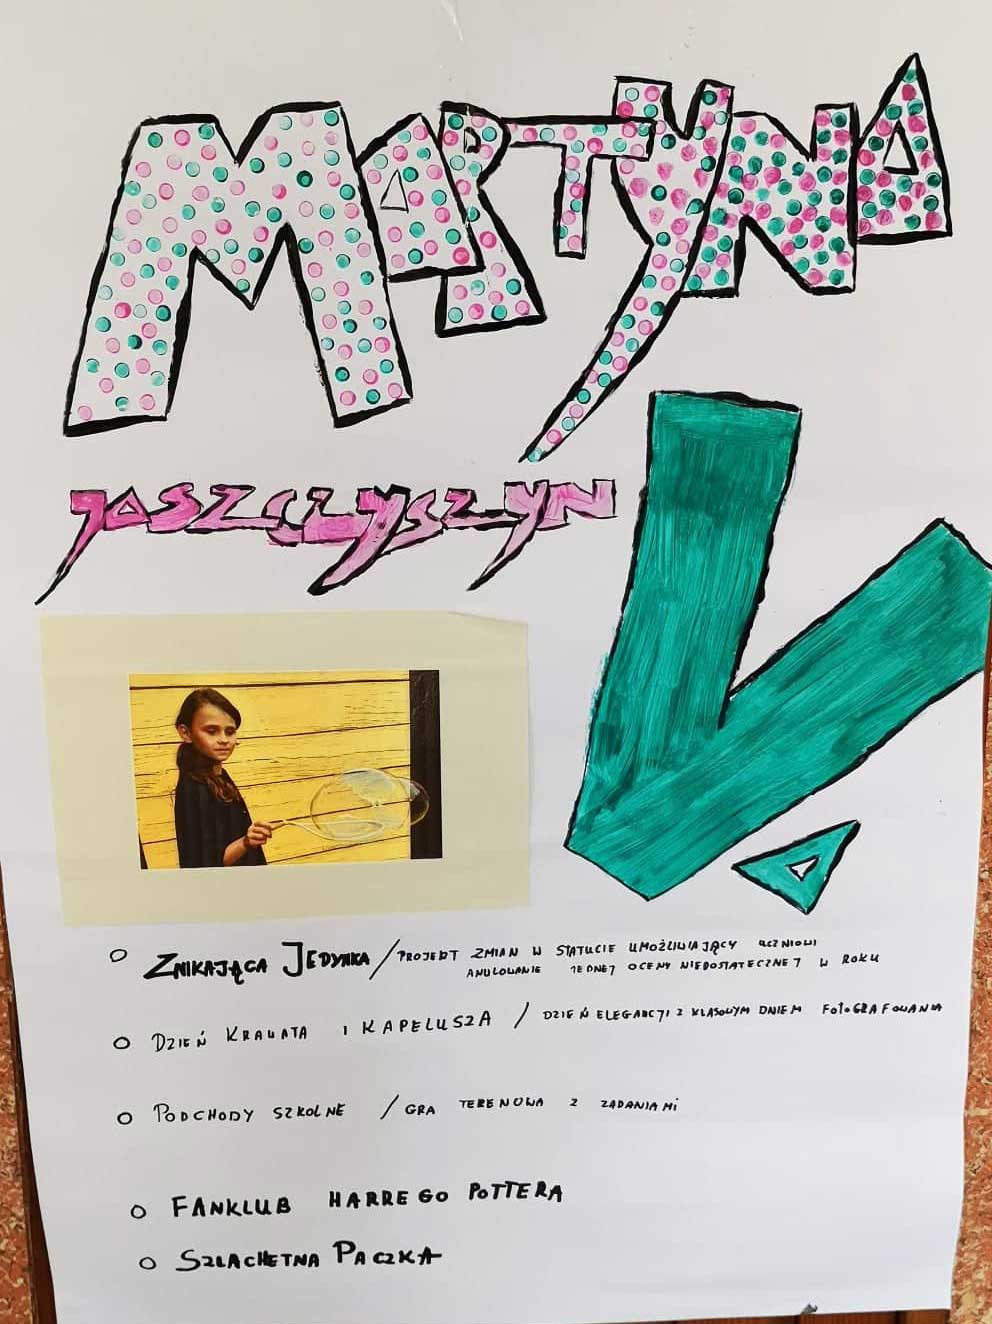 MARTYNA
JASZCZYSZYN
V
A
ZNIKAJĄCA JEDYNKA / PROJEKT ZMIAN W STATUCIE UMOŻLIWIAJĄCY UCZNIOWI
ANULOWANIE JEDNEJ OCENY NIEDOSTATECZNEJ W ROKU
DZIEŃ KRAWATA I KAPELUSZA / DZIEŃ ELEGANCJI Z KLASOWYM DNIEM FOTOGRAFOWANIA
PODCHODY SZKOLNE / GRA TERENOWA Z ZADANIAMI
FANKLUB HARREGO POTTERA
SZLACHETNA PACZKA